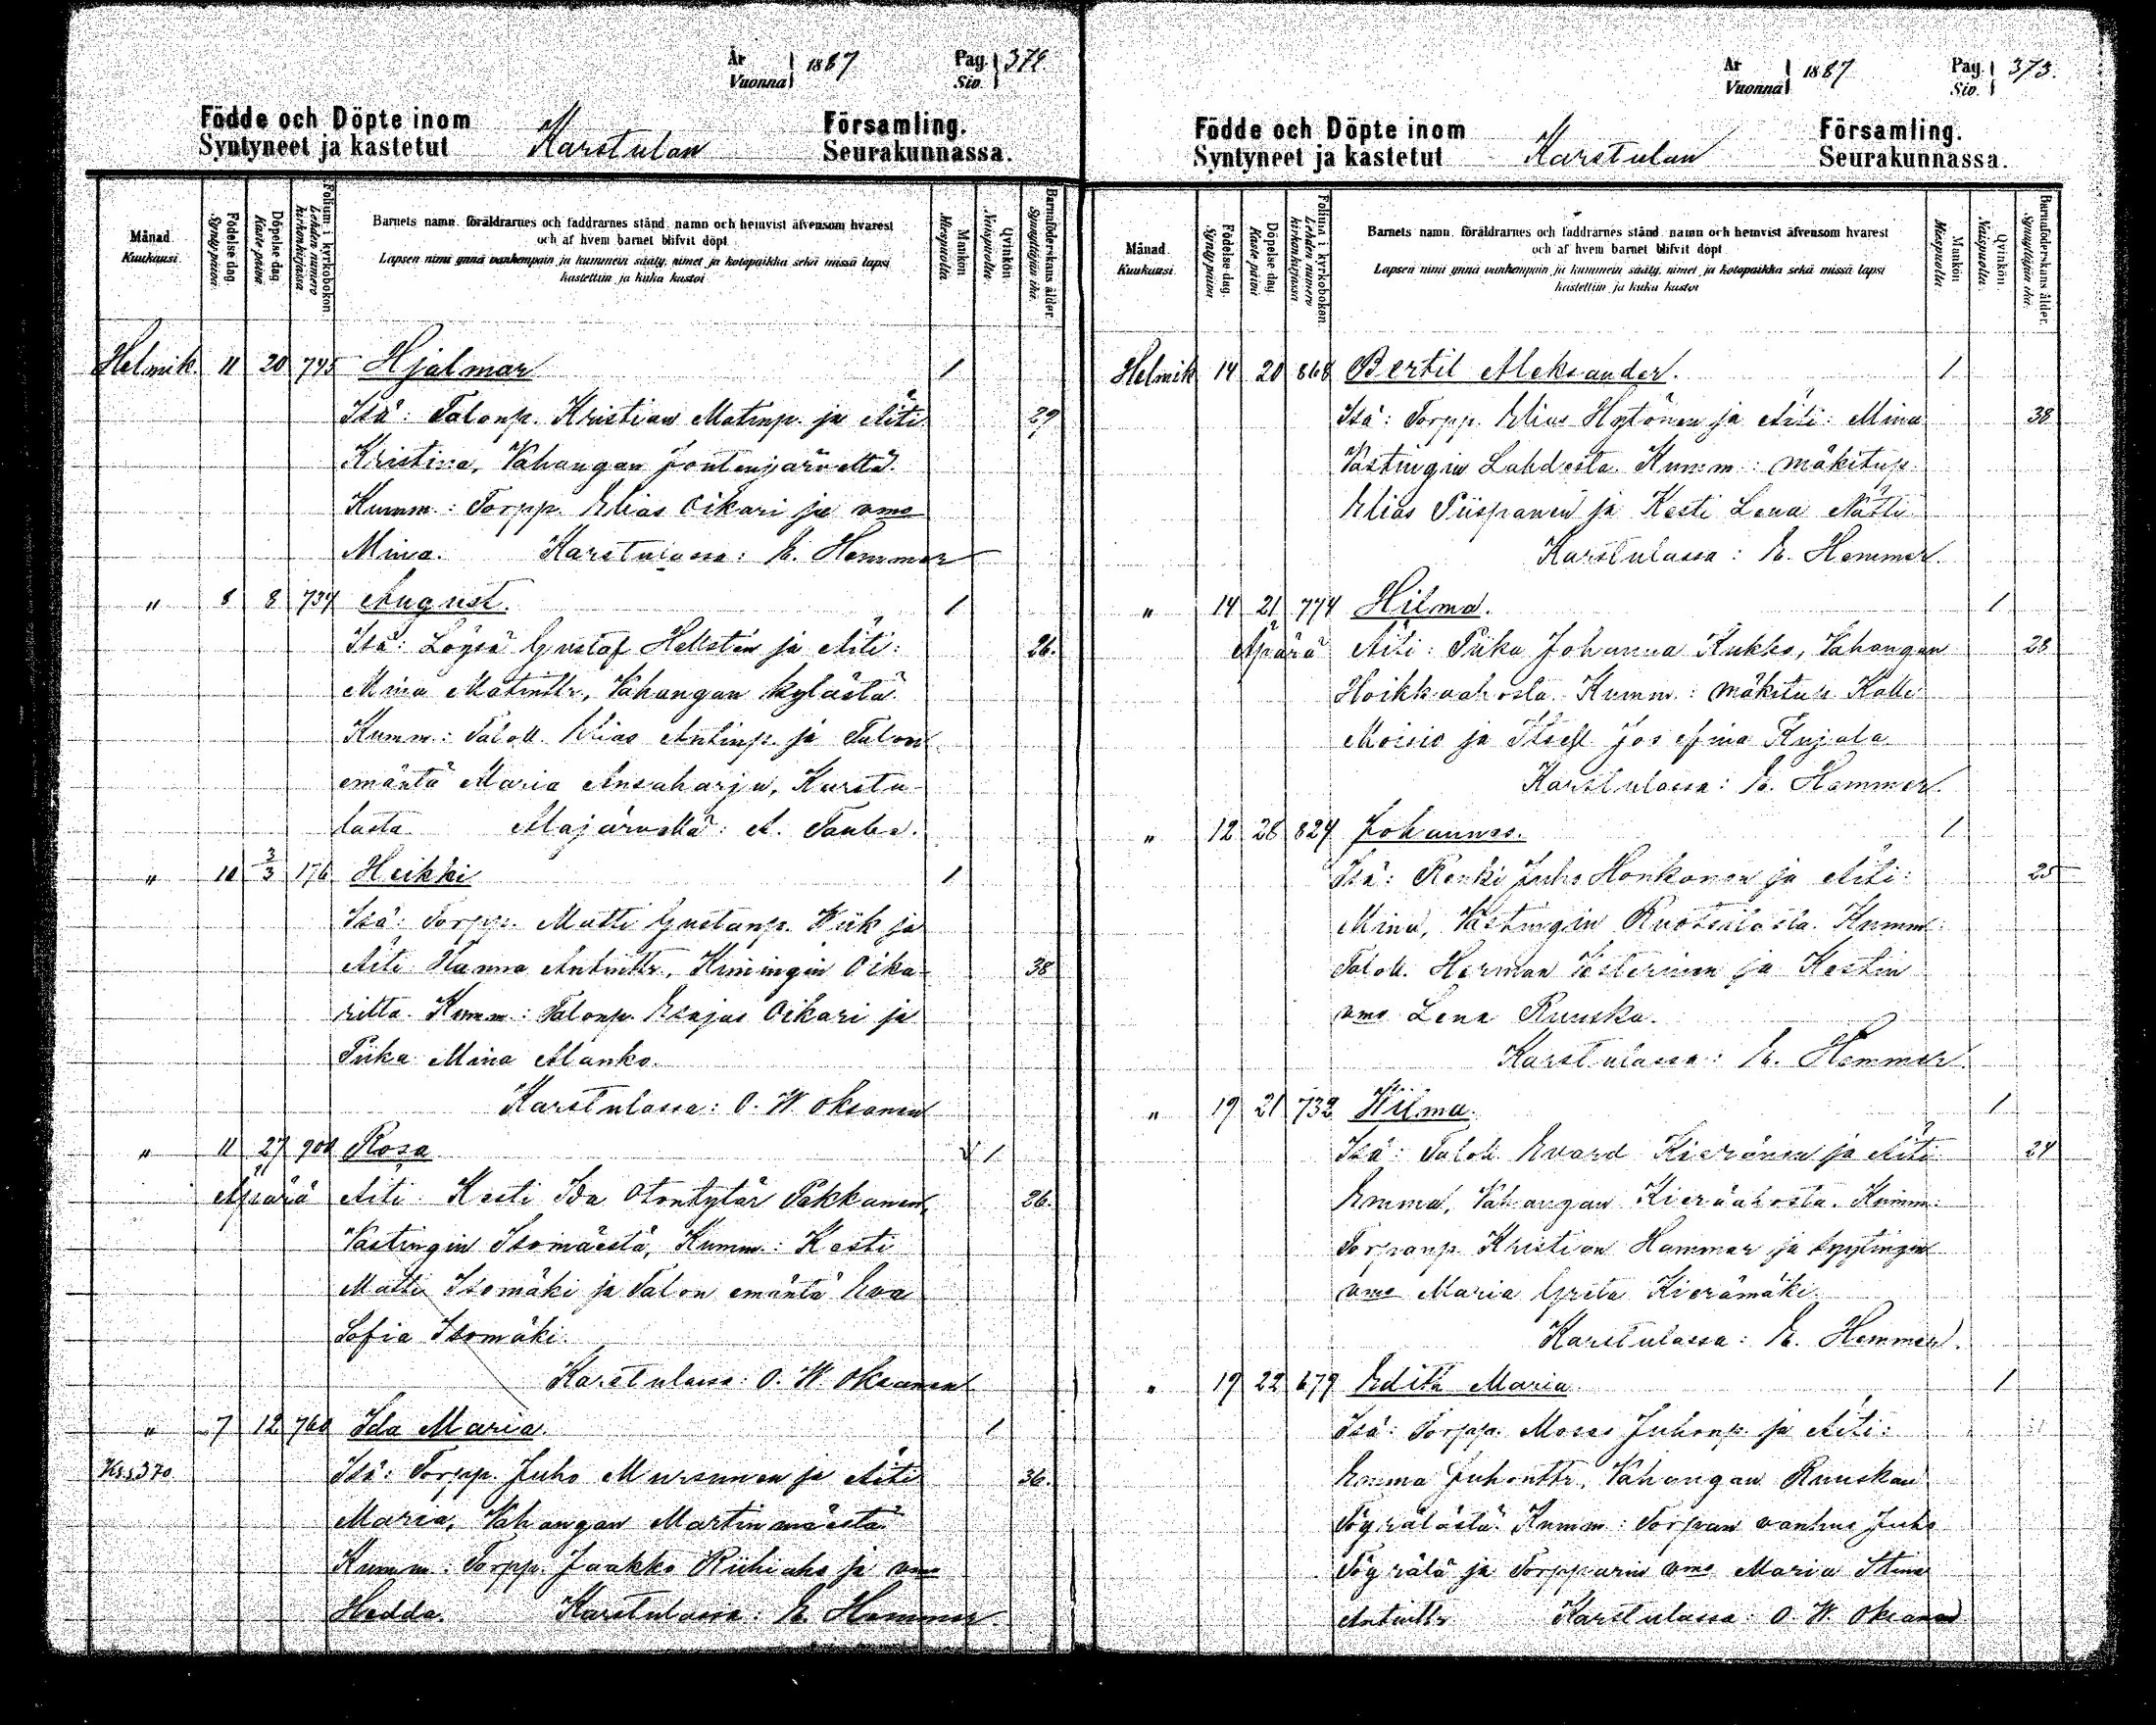 År Vuonna 1887 Pag. Siv. 374
Födde och Döpte inom Församling.
Syntyneet ja kastetut Karstulan Seurakunnassa.
Månad Kuukausi.
Födelse dag. Synty päivä.
Döpelse dag. Kaste päivä
Folium i kyrkoboken Lehden numero kirkonkirjassa.
Barnets namn, föräldrarnes och faddrarnes stånd, namn och hemvist äfvensom hvarest
och af hvem barnet blifvit döpt
Lapsen nimi ynnä vanhempain ja kummein sääty, nimet ja kotopaikka sekä missä lapsi
kastettiin ja kuka kastoi
Mankön Miespuolta.
Qvinkön Naispuolta.
Barnaföderskans ålder. Synnyttäjän ikä.
Helmik. 11 20 795 Hjalmar 1
Isä: Talonp. Kristian Matinp. ja Äiti 29
Kristina, Vahangan Joutenjärveltä.
Kumm: Torpp. Elias Oikari ja vmo
Mina. Karstulassa: E. Hemmer
" 8 8 734 August. 1
Isä: Löysä Gustaf Hellsten ja Äiti: 26.
Mina Matintr, Vahangan kylästä
Kumm: Taloll. Elias Antinp. ja Talon
emäntä Maria Ansaharju, Karstu-
lasta. Alajärvellä: A. Taube.
" 10 3/3 176 Heikki 1
Isä: Torpp. Matti Gustanp. Kiik ja
Äiti Hanna Antintr, Kimingin Oika- 38
rilta. Kumm: Talonp. Esajas Oikari ja
Piika Mina Manko.
Karstulassa: O. W. Oksanen
" 11 27 900 Rosa 1
Äpärä Äiti Kesti Ida Otontytär Pakkanen, 26.
Västingin Isomäestä, Kumm: Kesti
Matti Isomäki ja Talon emäntä Eva
Sofia Isomäki.
Karstulassa: O. W. Oksanen
" 7 12 760 Ida Maria. 1
Ks. s. 370 Isä: Torpp. Juho Mursunen ja Äiti 36.
Maria, Vahangan Martinmäestä
Kumm: Torpp. Jaakko Riihiaho ja vmo
Hedda. Karstulassa: E. Hemmer.
År Vuonna 1887 Pag. Siv. 373.
Födde och Döpte inom Församling.
Syntyneet ja kastetut Karstulan Seurakunnassa.
Månad Kuukausi.
Födelse dag. Synty päivä.
Döpelse dag. Kaste päivä
Folium i kyrkoboken Lehden numero kirkonkirjassa
Barnets namn, föräldrarnes och faddrarnes stånd, namn och hemvist äfvensom hvarest
och af hvem barnet blifvit döpt
Lapsen nimi ynnä vanhempain ja kummein sääty, nimet ja kotopaikka sekä missä lapsi
kastettiin ja kuka kastoi
Mankön Miespuolta.
Qvinkön Naispuolta.
Barnaföderskans ålder. Synnyttäjän ikä.
Helmik 14 20 868 Bertil Aleksander. 1
Isä: Torpp. Elias Hytönen ja Äiti: Mina 38
Västingin Lahdesta. Kumm: mäkitup.
Elias Piispanen ja Kesti Lena Nätti
Karstulassa: E. Hemmer.
" 14 21 774 Hilma. 1
Äpärä Äiti: Piika Johanna Kukko, Vahangan 28
Hoikkaahosta. Kumm: mäkitup. Kalle
Moisio ja Itsell. Josefina Kujala.
Karstulassa: E. Hemmer.
" 12 28 824 Johannes. 1
Isä: Renki Juho Honkonen ja Äiti: 25
Mina, Västingin Ruotsilasta. Kumm:
Taloll. Herman Vesterinen ja Kestin
vmo Lena Ruuska.
Karstulassa: E. Hemmer.
" 19 21 732 Hilma. 1
Isä: Taloll. Evard Kieränen ja Äiti 24
Emma, Vahangan Kieräahosta. Kumm:
Torpanp. Kristian Hammar ja Syytingin
vmo Maria Greta Kierämäki.
Karstulassa: E. Hemmer.
" 19 22 679 Edith Maria 1
Isä: Torpp. Moses Juhonp. ja Äiti:
Emma Juhontr, Vahangan Ruuskan
Töyrälästä. Kumm: Torpan vanhus Juho
Töyrälä ja Torpparin vmo Maria Stina
Antintr Karstulassa: O. W. Oksanen